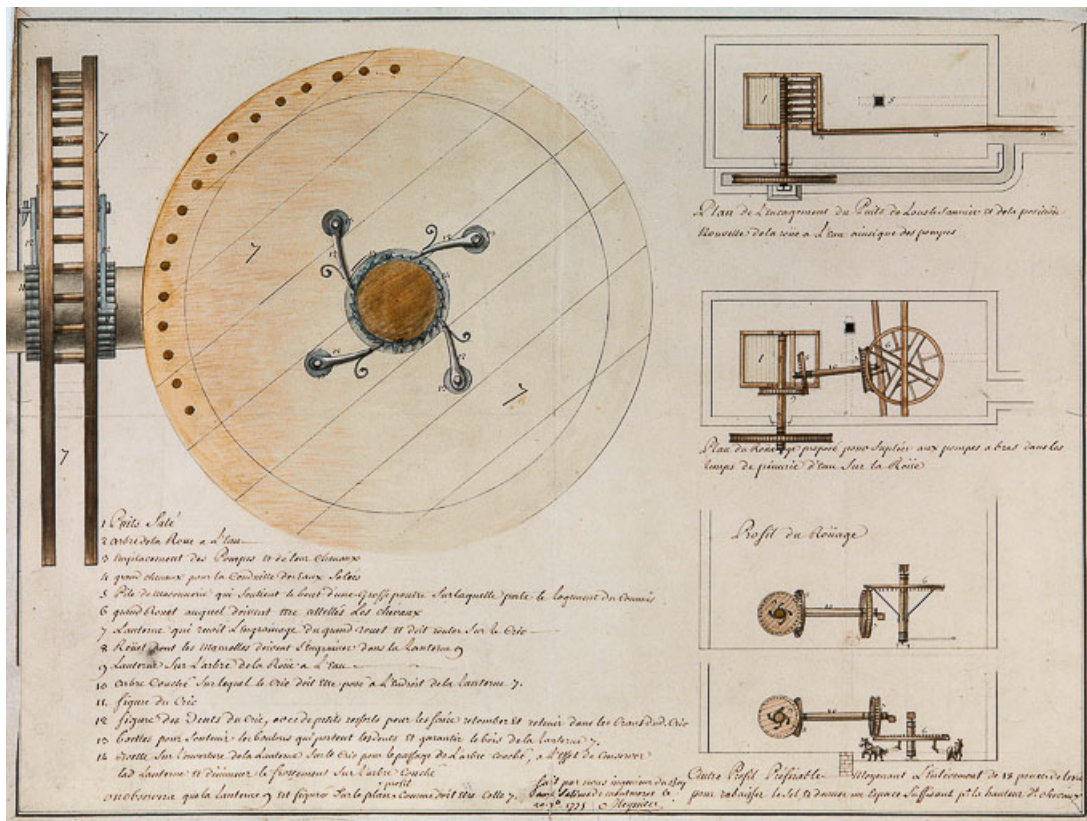 Plan de L'encagement du Puits de Lons le Saunier et de la position
Nouvelle de la roüe a L'Eau ainsi que des pompes
Plan du Roüage proposé pour Supléer aux pompes a bras dans les
temps de pénurie d'Eau Sur la Roüe
Profil du Roüage
1 Puits Salé
2 arbre de la Roüe a L'Eau
3 Emplacement des Pompes et de leur
4 grand chenaux pour la Conduitte des Eaux Salées
5 Pile de massonnerie qui Soutient le bout d'une Grosse poutre Sur laquelle porte le logement du Commis
6 grand Roüet auquel doivent etre attellés Les chevaux
7 Lanterne qui reçoit L'Engrainage du grand rouet et doit router Sur le Cric
8 Roüet dont les mamelles doivent S'engrainer dans la Lanterne 9
9 Lanterne Sur L'arbre de la Roüe a L'Eau
10 arbre Couché Sur lequel le Cric doit etre posé a L'Endroit de la lanterne 7.
11 figure du Cric
12 figure des Dents du Cric, avec de petits ressorts pour les faire retomber et retenir dans les Crans dud. Cric
13 boettes pour Soutenir les boulons qui portent les dents et garantir le bois de la lanterne 7.
14 Sur L'ouverture de la Lanterne Sur le Cric pour le passage de L'arbre Couché, a L'Effet de Conserver
lad Lanterne et diminuer le frottement Sur L'arbre Couché
profil
on observera que la lanterne 9 est figurée Sur le plan Comme doit etre Cotte 7.
fait par nous ingenieur du Roy
1775
Autre Profil Préférable Moyennant L'Enlevement de 18 pouces de terre
pour rabaisser le Sol, et donner un Espace Suffisant pr la hauteur ds chevaux